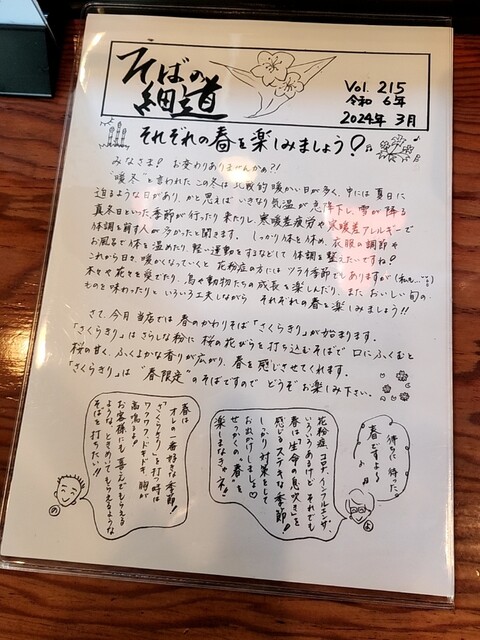 そばの
細道
Vol. 215
令和 6年
2024年 3月
それぞれの春を楽しみましょう?
みなさま! お変わりありませんかぁ?!
"暖冬"と言われたこの冬は比較的暖かい日が多く、中には夏日に
迫るような日があり、かと思えばいきなり気温が急降下し、雪が降る
真冬日といった季節が行ったり来たりし、寒暖差疲労や寒暖差アレルギーで
体調を崩す人が多かったと聞きます。しっかり体を休め、衣服の調節や
お風呂で体を温めたり、軽い運動をするなどして体調を整えたいですね?
これから日々、暖かくなっていくと花粉症の方にはツライ季節でもありますが(私も…)
木々や花々を愛でたり、鳥や動物たちの成長を楽しんだり、またおいしい旬の
ものを味わったりといろいろ工夫しながら それぞれの春を楽しみましょう!!
さて、今月当店では春のかわりそば「さくらきり」が始まります。
「さくらきり」はさらしな粉に桜の花びらを打ち込むそばで口にふくむと
桜の甘く、ふくよかな香りが広がり、春を感じさせてくれます。
「さくらきり」は"春限定"のそばですのでどうぞお楽しみ下さい。
待ちに待った
春ですよる
花粉症、コロナ、インフルエンザ、
いろいろあるけど、それでも
春は「生命の息吹き」を
感じるステキな季節!
しっかり対策をして
お出かけしましょ♡
せっかくの"春"を
楽しまなきゃネ♪
よ
春は
オレの一番好きな季節!
「さくらきり」を打つ時は
ワクワク、ドキドキ 胸が
高鳴るよ!
お客様にも喜んでもらえる
ような、ときめいてもらえるような
そばを打ちたい!!
の